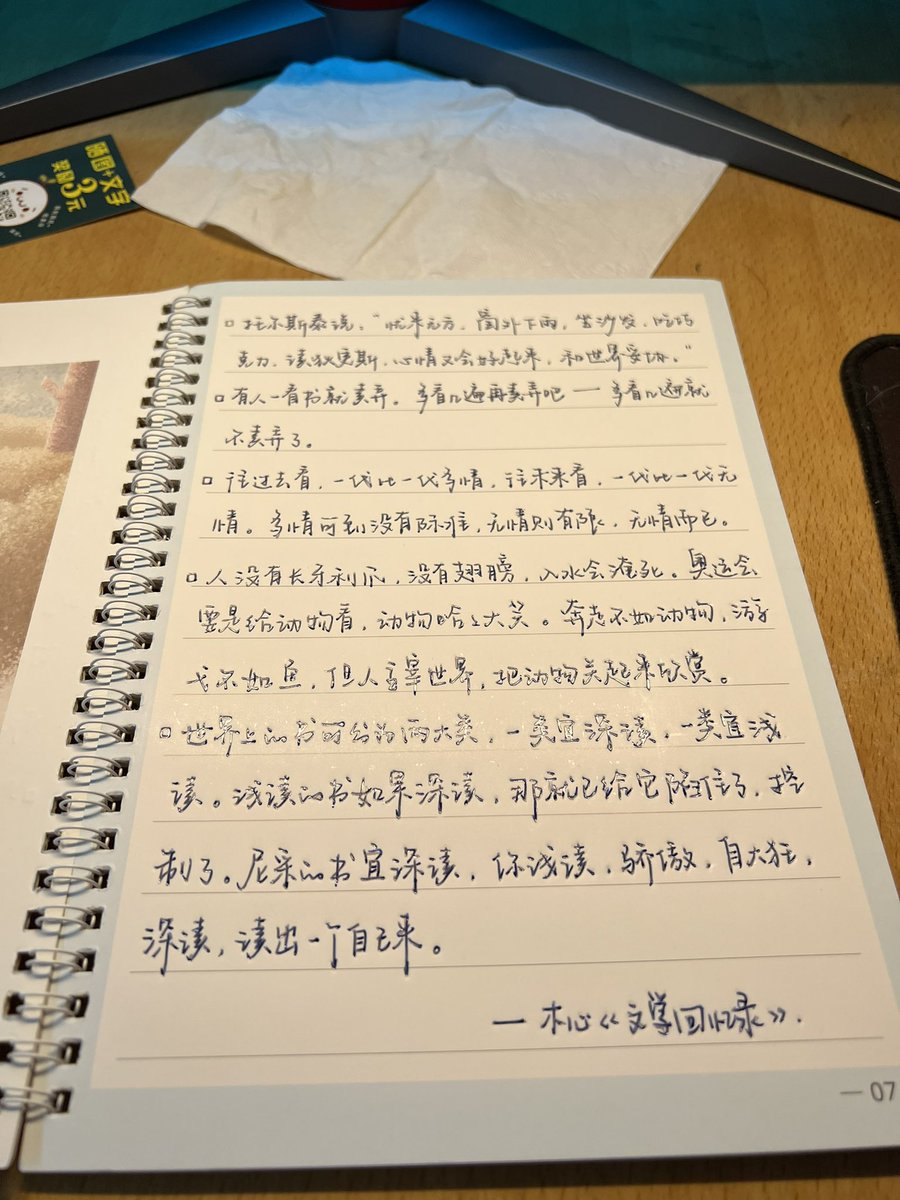 晒图+文字
奖励3元
□ 托尔斯泰说，“忧来无方，窗外下雨，坐沙发，吃巧
克力，读狄更斯，心情又会好起来，和世界妥协。”
□ 有人一看书就卖弄。多看几遍再卖弄吧 — 多看几遍就
不卖弄了。
□ 往过去看，一代比一代多情，往未来看，一代比一代无
情。多情可到没有际涯，无情则有限，无情而已。
□ 人没有长牙利爪，没有翅膀，入水会淹死。奥运会
要是给动物看，动物哈哈大笑。奔走不如动物，游
弋不如鱼，但人主宰世界，把动物关起来欣赏。
□ 世界上的书可分为两大类，一类宜深读，一类宜浅
读。浅读的书如果深读，那就已给它陷住了，控
制了。尼采的书宜深读，你浅读，骄傲，自大狂，
深读，读出一个自己来。
— 木心《文学回忆录》.
— 07